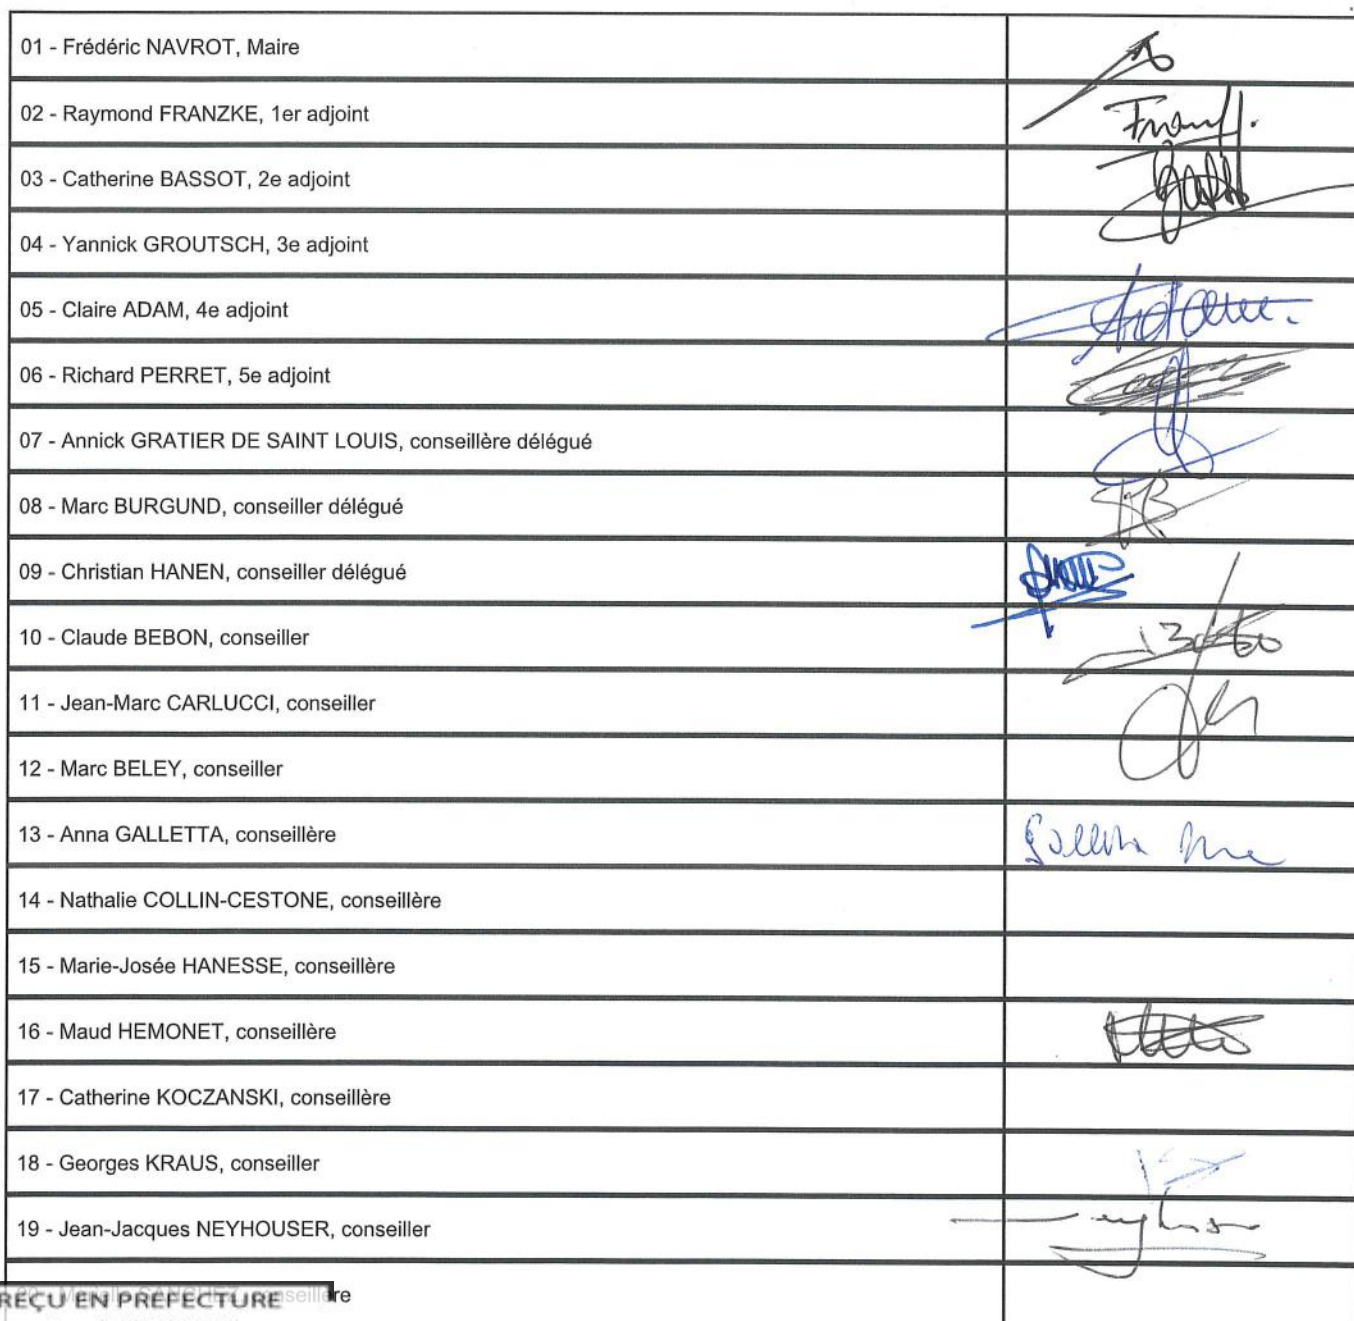 01 - Frédéric NAVROT, Maire
02 - Raymond FRANZKE, 1er adjoint
03 - Catherine BASSOT, 2e adjoint
04 - Yannick GROUTSCH, 3e adjoint
05 - Claire ADAM, 4e adjoint
Adam.
06 - Richard PERRET, 5e adjoint
07 - Annick GRATIER DE SAINT LOUIS, conseillère délégué
08 - Marc BURGUND, conseiller délégué
09 - Christian HANEN, conseiller délégué
10 - Claude BEBON, conseiller
11 - Jean-Marc CARLUCCI, conseiller
12 - Marc BELEY, conseiller
13 - Anna GALLETTA, conseillère
14 - Nathalie COLLIN-CESTONE, conseillère
15 - Marie-Josée HANESSE, conseillère
16 - Maud HEMONET, conseillère
17 - Catherine KOCZANSKI, conseillère
18 - Georges KRAUS, conseiller
19 - Jean-Jacques NEYHOUSER, conseiller
REÇU EN PREFECTURE